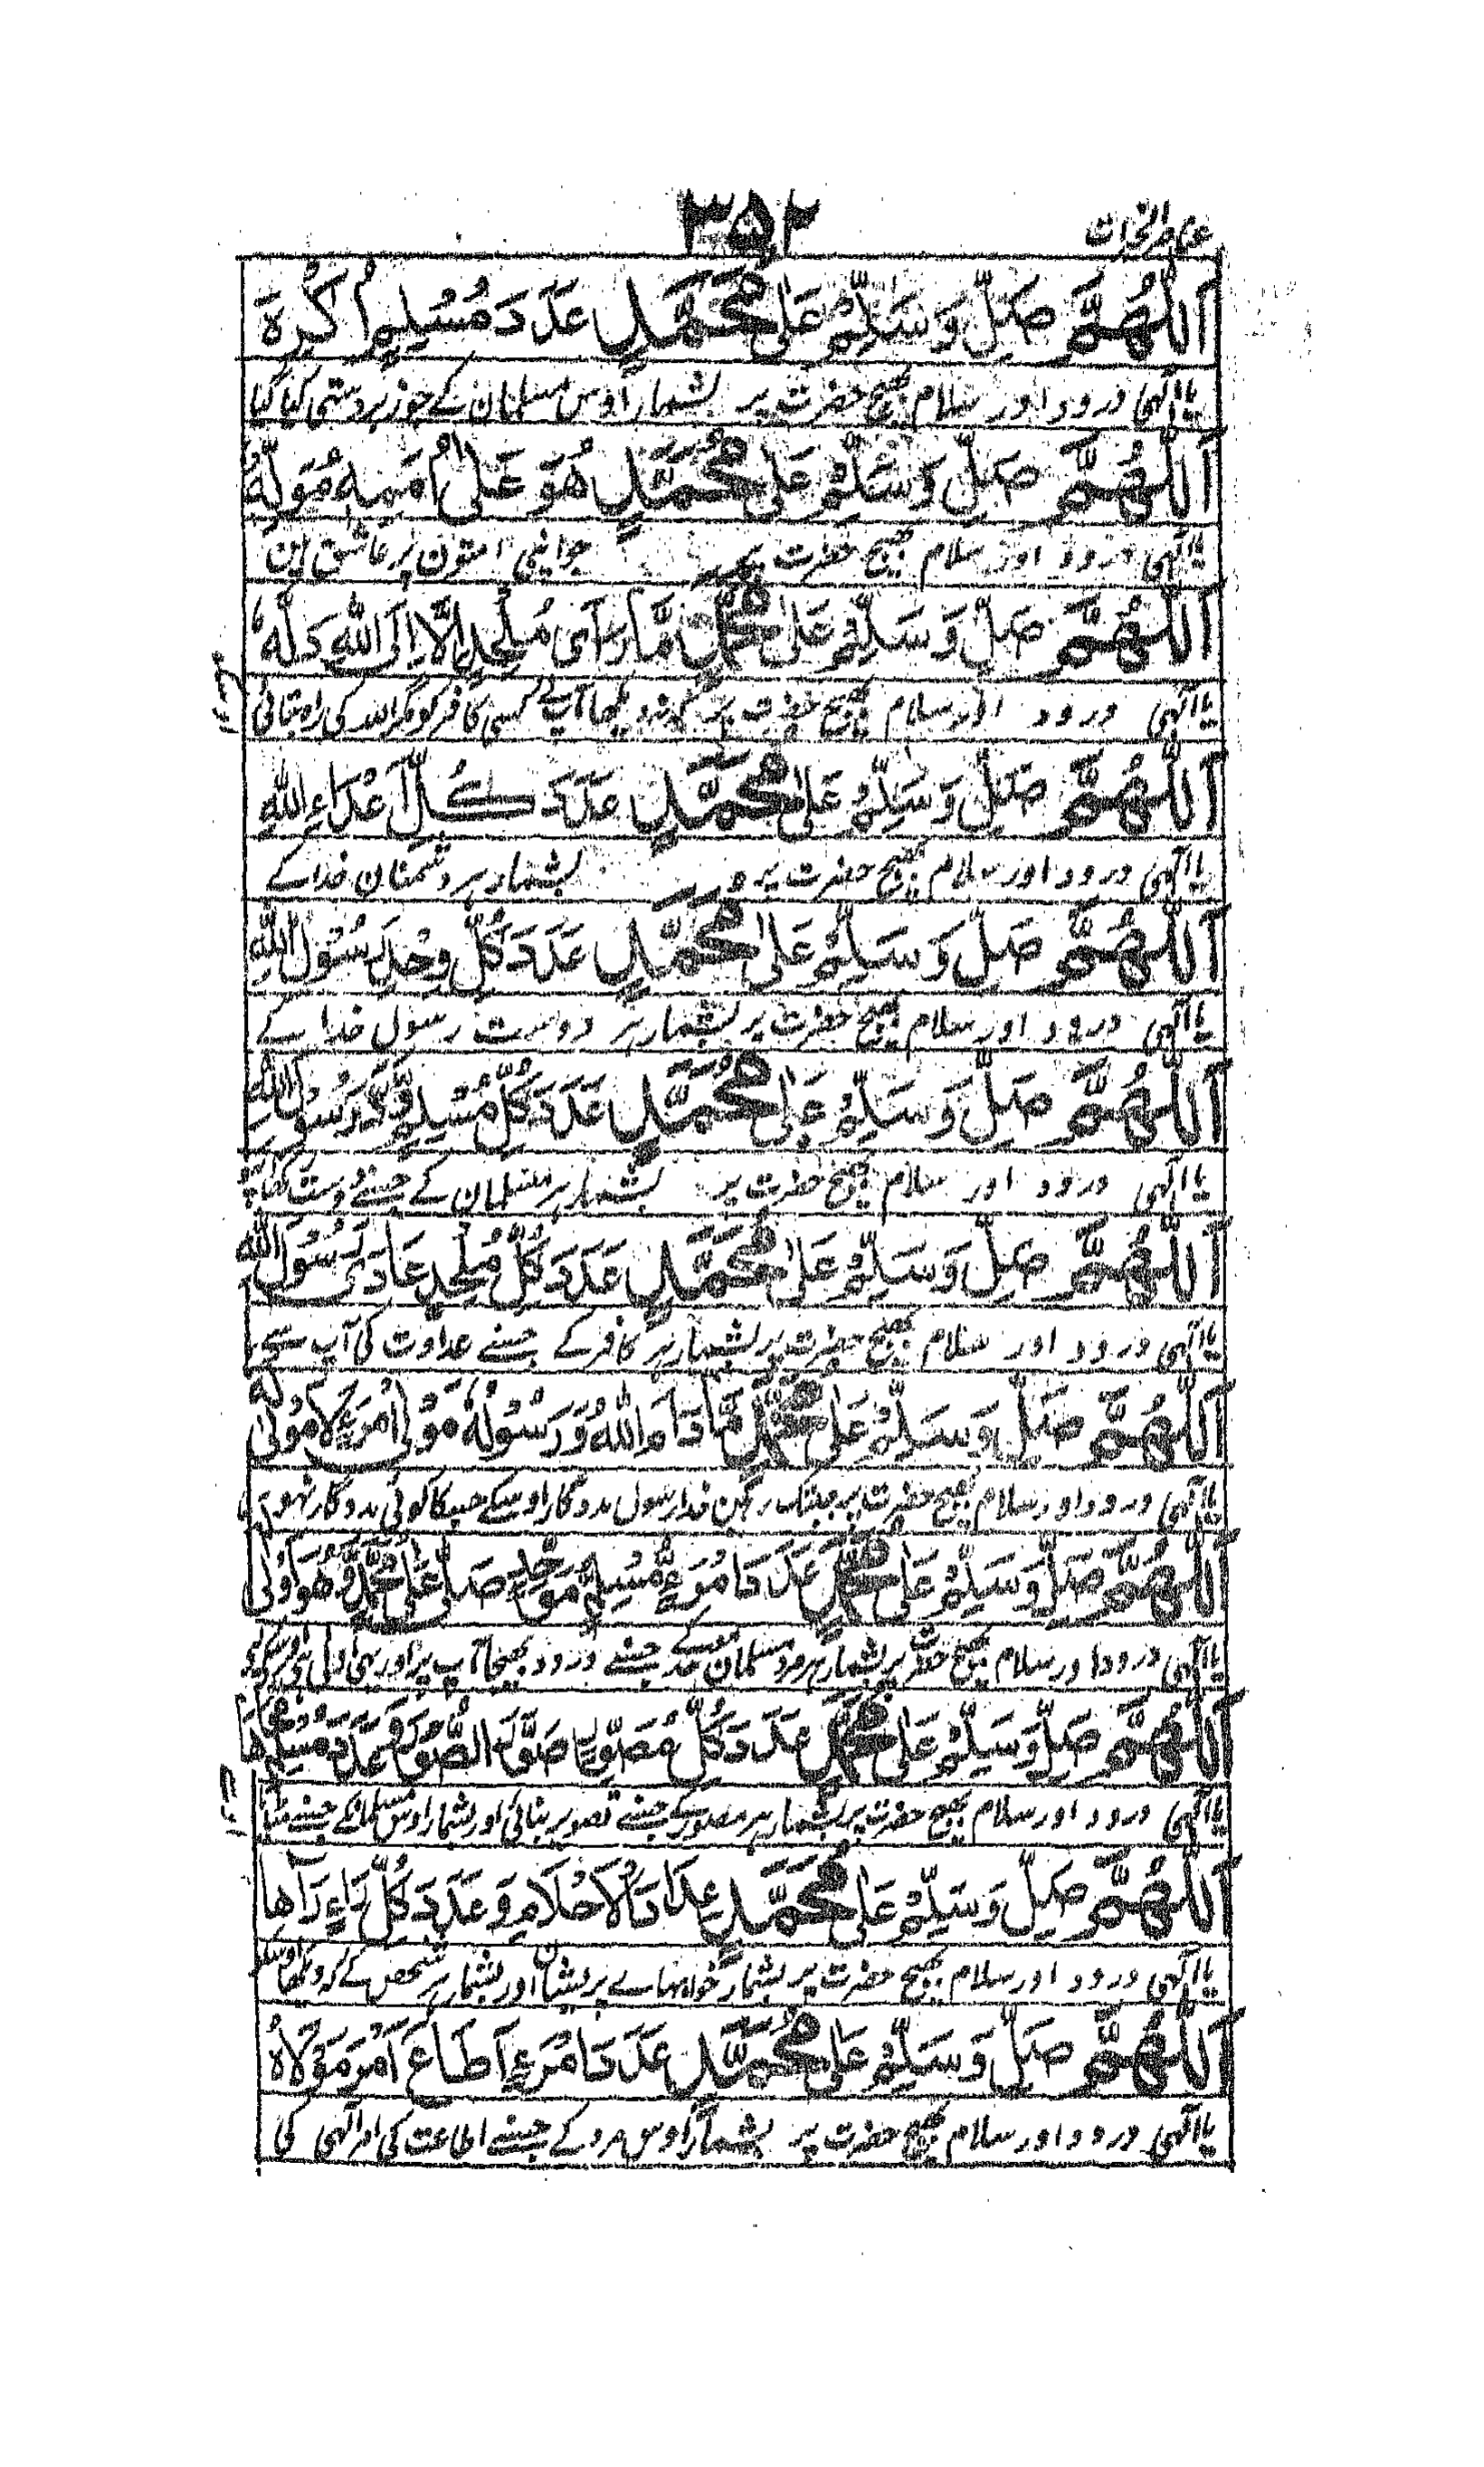 ۳۵۲
اَللّٰهُمَّ صَلِّ وَسَلِّمْ عَلٰی مُحَمَّدٍ عَدَدَ مُسْلِمٍ اُکْرِهَ
یا الٰہی درود اور سلام بھیج حضرت پر بشمار اوس مسلمان کے جو زبردستی کیا گیا
اَللّٰهُمَّ صَلِّ وَسَلِّمْ عَلٰی مُحَمَّدٍ هُوَ عَلٰی اُمَمِهٖ مُوَلَّهٌ
یا الٰہی درود اور سلام بھیج حضرت پر جو اپنی امتون پر عاشق ہین
اَللّٰهُمَّ صَلِّ وَسَلِّمْ عَلٰی مُحَمَّدٍ مَّا رَاٰی مُلْحِدًا اِلَّا اِلَی اللّٰهِ دَلَّهٗ
یا الٰہی درود اور سلام بھیج حضرت پر کہ نہ دیکھا آپ نے کسی کافر کو مگر اللہ کی راہ بتائی
اَللّٰهُمَّ صَلِّ وَسَلِّمْ عَلٰی مُحَمَّدٍ عَدَدَ کُلِّ اَعْدَاءِ اللّٰهِ
یا الٰہی درود اور سلام بھیج حضرت پر بشمار ہر دشمنان خدا کے
اَللّٰهُمَّ صَلِّ وَسَلِّمْ عَلٰی مُحَمَّدٍ عَدَدَ کُلِّ رَسُوْلِ اللّٰهِ
یا الٰہی درود اور سلام بھیج حضرت پر بشمار ہر دوست رسول خدا کے
اَللّٰهُمَّ صَلِّ وَسَلِّمْ عَلٰی مُحَمَّدٍ عَدَدَ کُلِّ مُسْلِمٍ وَّدَّ رَسُوْلَ اللّٰهِ
یا الٰہی درود اور سلام بھیج حضرت پر بشمار ہر مسلمان کے جسنے دوست رکھا
اَللّٰهُمَّ صَلِّ وَسَلِّمْ عَلٰی مُحَمَّدٍ عَدَدَ کُلِّ مُلْحِدٍ عَادٰی رَسُوْلَ اللّٰهِ
یا الٰہی درود اور سلام بھیج حضرت پر بشمار ہر کافر کے جسنے عداوت کی آپ سے
اَللّٰهُمَّ صَلِّ وَسَلِّمْ عَلٰی مُحَمَّدٍ مَّا دَامَ اللّٰهُ وَرَسُوْلُهٗ مَوْلٰی امْرَءٍ لَا مَوْلٰی لَهٗ
یا الٰہی درود اور سلام بھیج حضرت پر جبتک رہین خدا رسول مددگار اوسکے جسکا کوئی مددگار نہو
اَللّٰهُمَّ صَلِّ وَسَلِّمْ عَلٰی مُحَمَّدٍ عَدَدَ امْرَءٍ مُّسْلِمٍ مُوَحِّدٍ صَلّٰی عَلٰی مُحَمَّدٍ وَّهُوَ اَوْلٰی
یا الٰہی درود اور سلام بھیج حضرت پر بشمار ہر مرد مسلمان کے جسنے درود بھیجا آپ پر اور
اَللّٰهُمَّ صَلِّ وَسَلِّمْ عَلٰی مُحَمَّدٍ عَدَدَ کُلِّ مُصَوِّرٍ صَوَّرَ الصُّوَرَ وَعَدَدَ مُسْلِمٍ
یا الٰہی درود اور سلام بھیج حضرت پر بشمار ہر مصور کے جسنے تصویر بنائی اور بشمار اوس مسلمان کے جسنے
اَللّٰهُمَّ صَلِّ وَسَلِّمْ عَلٰی مُحَمَّدٍ عِدَادَ الْاَحْلَامِ وَعَدَدَ کُلِّ رَاءٍ رَاٰهَا
یا الٰہی درود اور سلام بھیج حضرت پر بشمار خواہ بہاے پریشان اور بشمار ہر شخص کے
اَللّٰهُمَّ صَلِّ وَسَلِّمْ عَلٰی مُحَمَّدٍ عَدَدَ امْرَءٍ اَطَاعَ اَمْرَ مَوْلَاهُ
یا الٰہی درود اور سلام بھیج حضرت پر بشمار اوس مرد کے جسنے اطاعت کی امر الٰہی کی